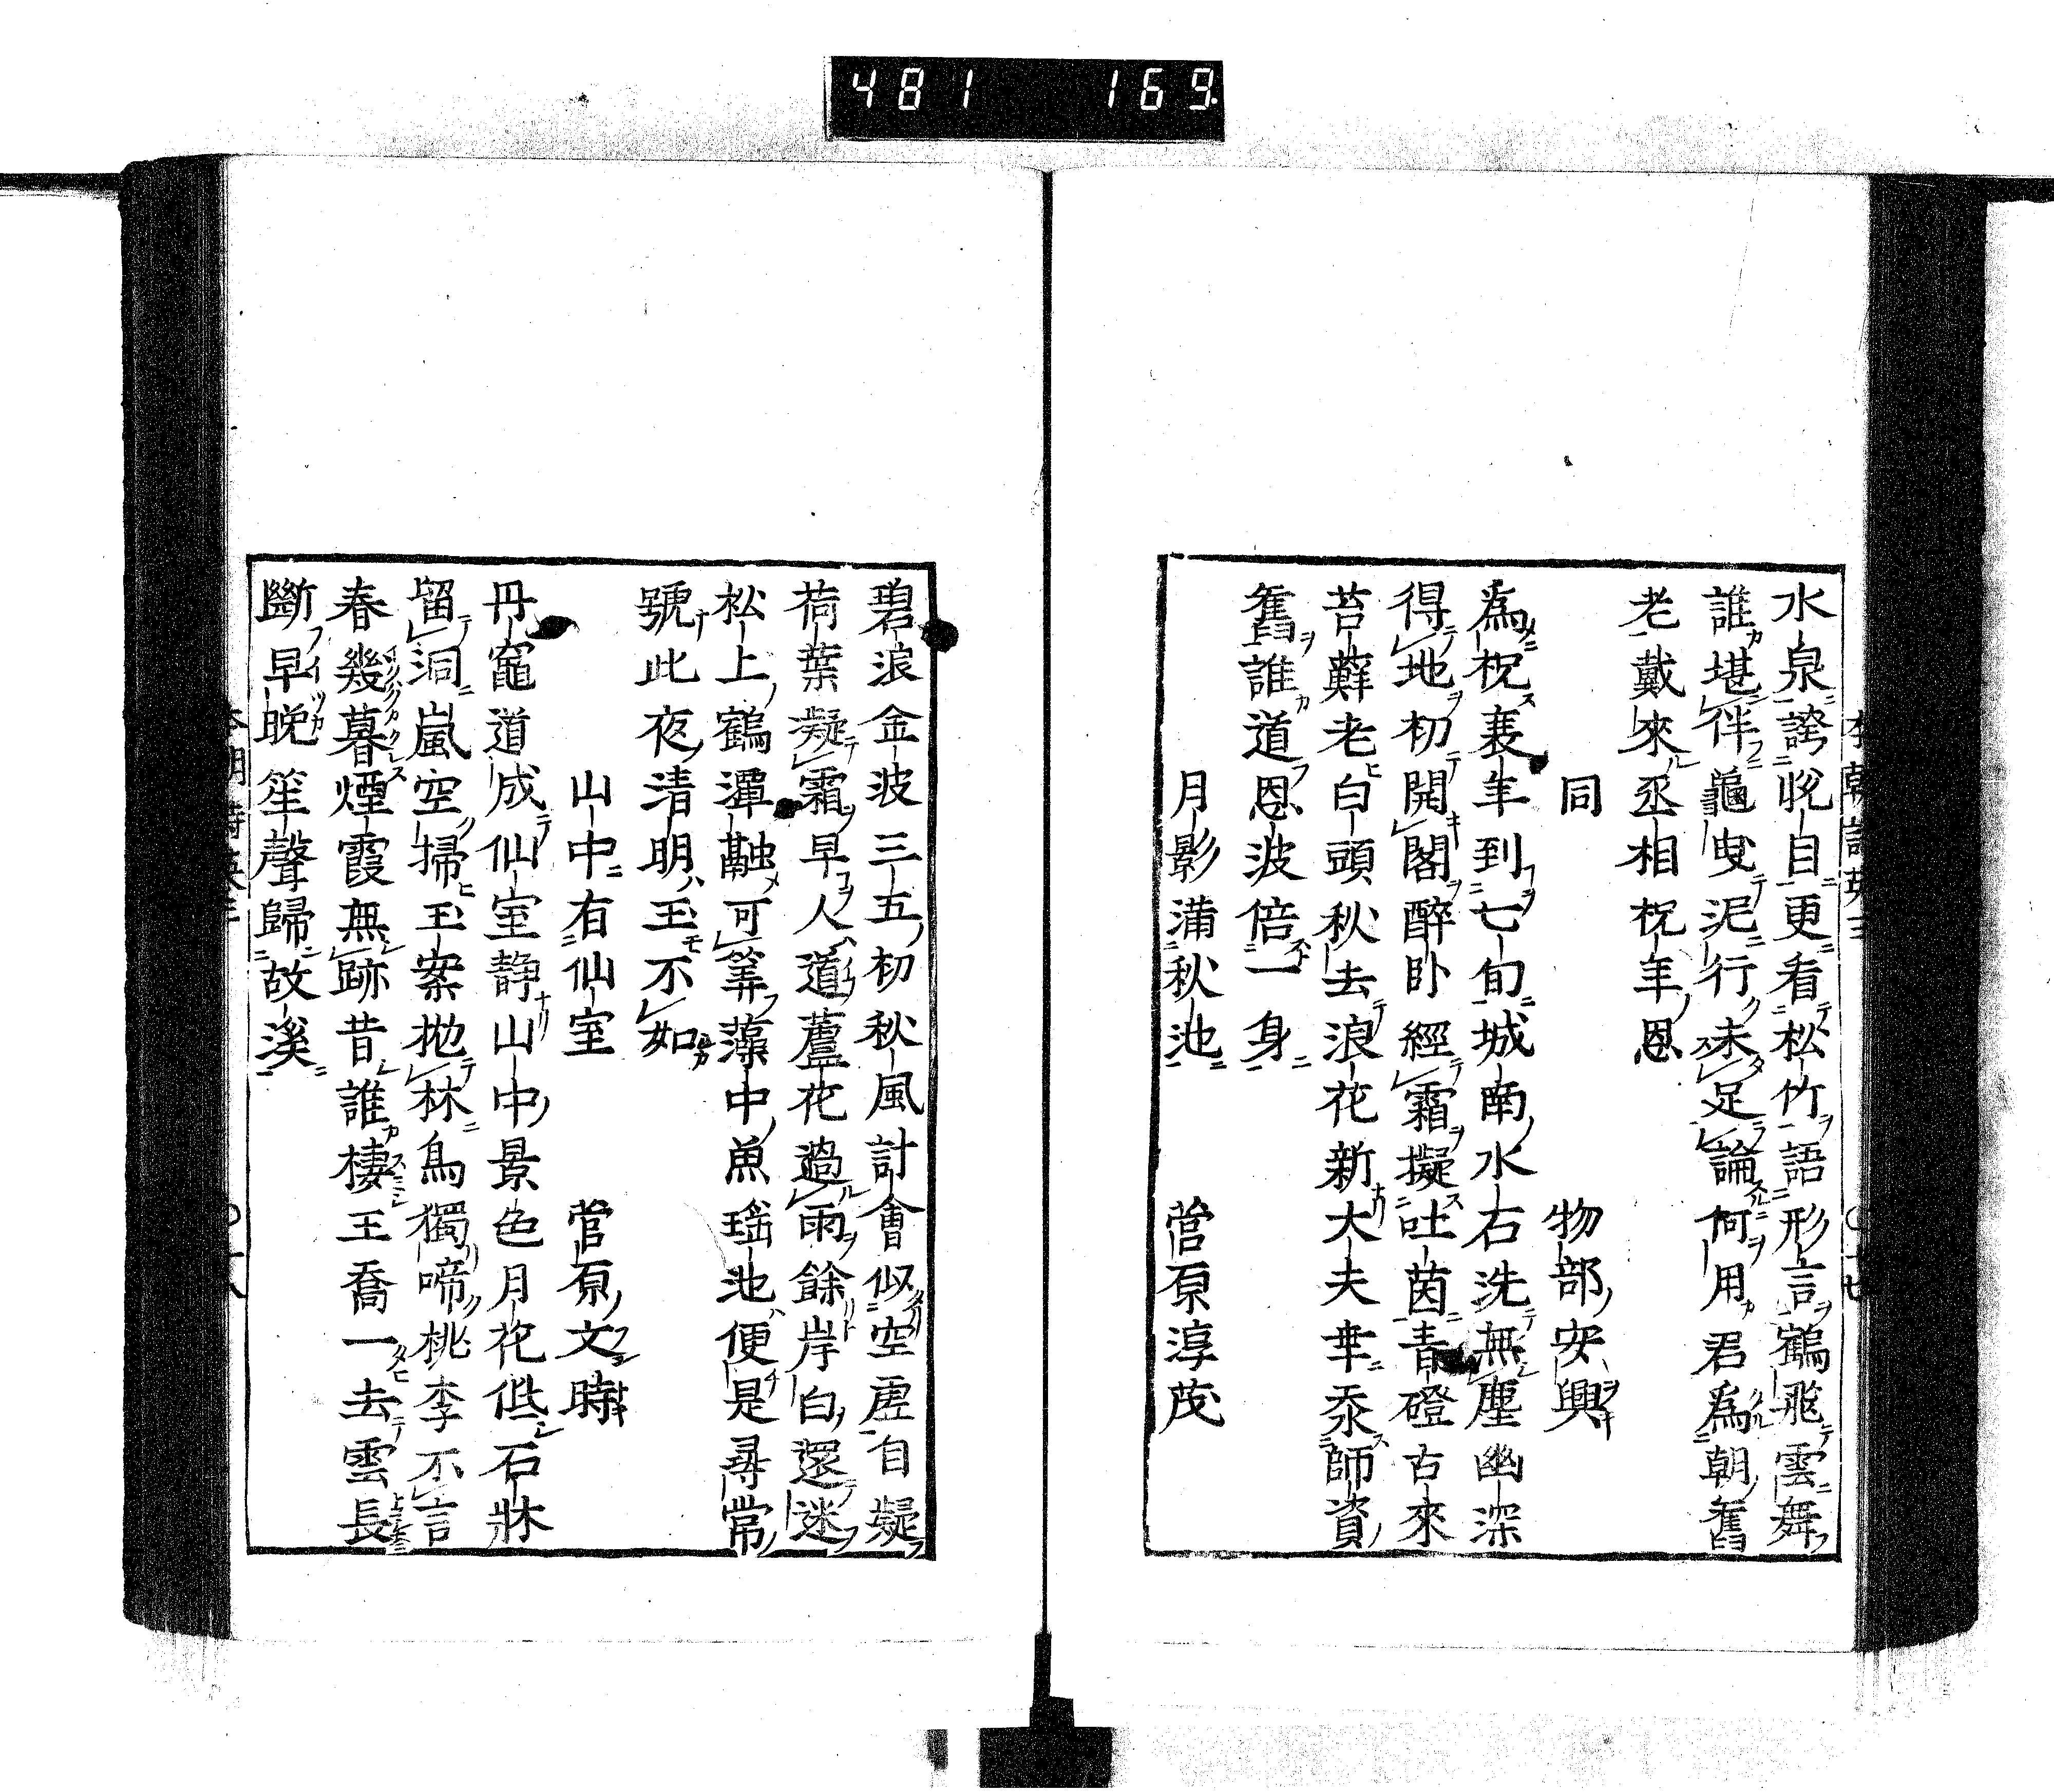 481 169
水泉誇悅目更看松竹語形言鶴飛雲舞
誰堪伴龜曳泥行未足論何用君爲朝舊
老戴來丞相祝年恩
同 物部安興
爲祝衰年到七旬城南水石洗無塵幽深
得地初開閣醉臥經霜擬吐茵青磴古來
苔蘚老白頭秋去浪花新大夫幸忝師資
舊誰道恩波倍一身
月影滿秋池 菅原淳茂
碧浪金波三五初秋風計會似空虛自疑
荷葉凝霜早人道蘆花過雨餘岸白還迷
松上鶴潭融可筭藻中魚瑤池便是尋常
號此夜淸明玉不如
山中有仙室 菅原文時
丹竈道成仙室靜山中景色月花低石牀
留洞嵐空掃玉案拋林鳥獨啼桃李不言
春幾暮煙霞無跡昔誰棲王喬一去雲長
斷早晩笙聲歸故溪